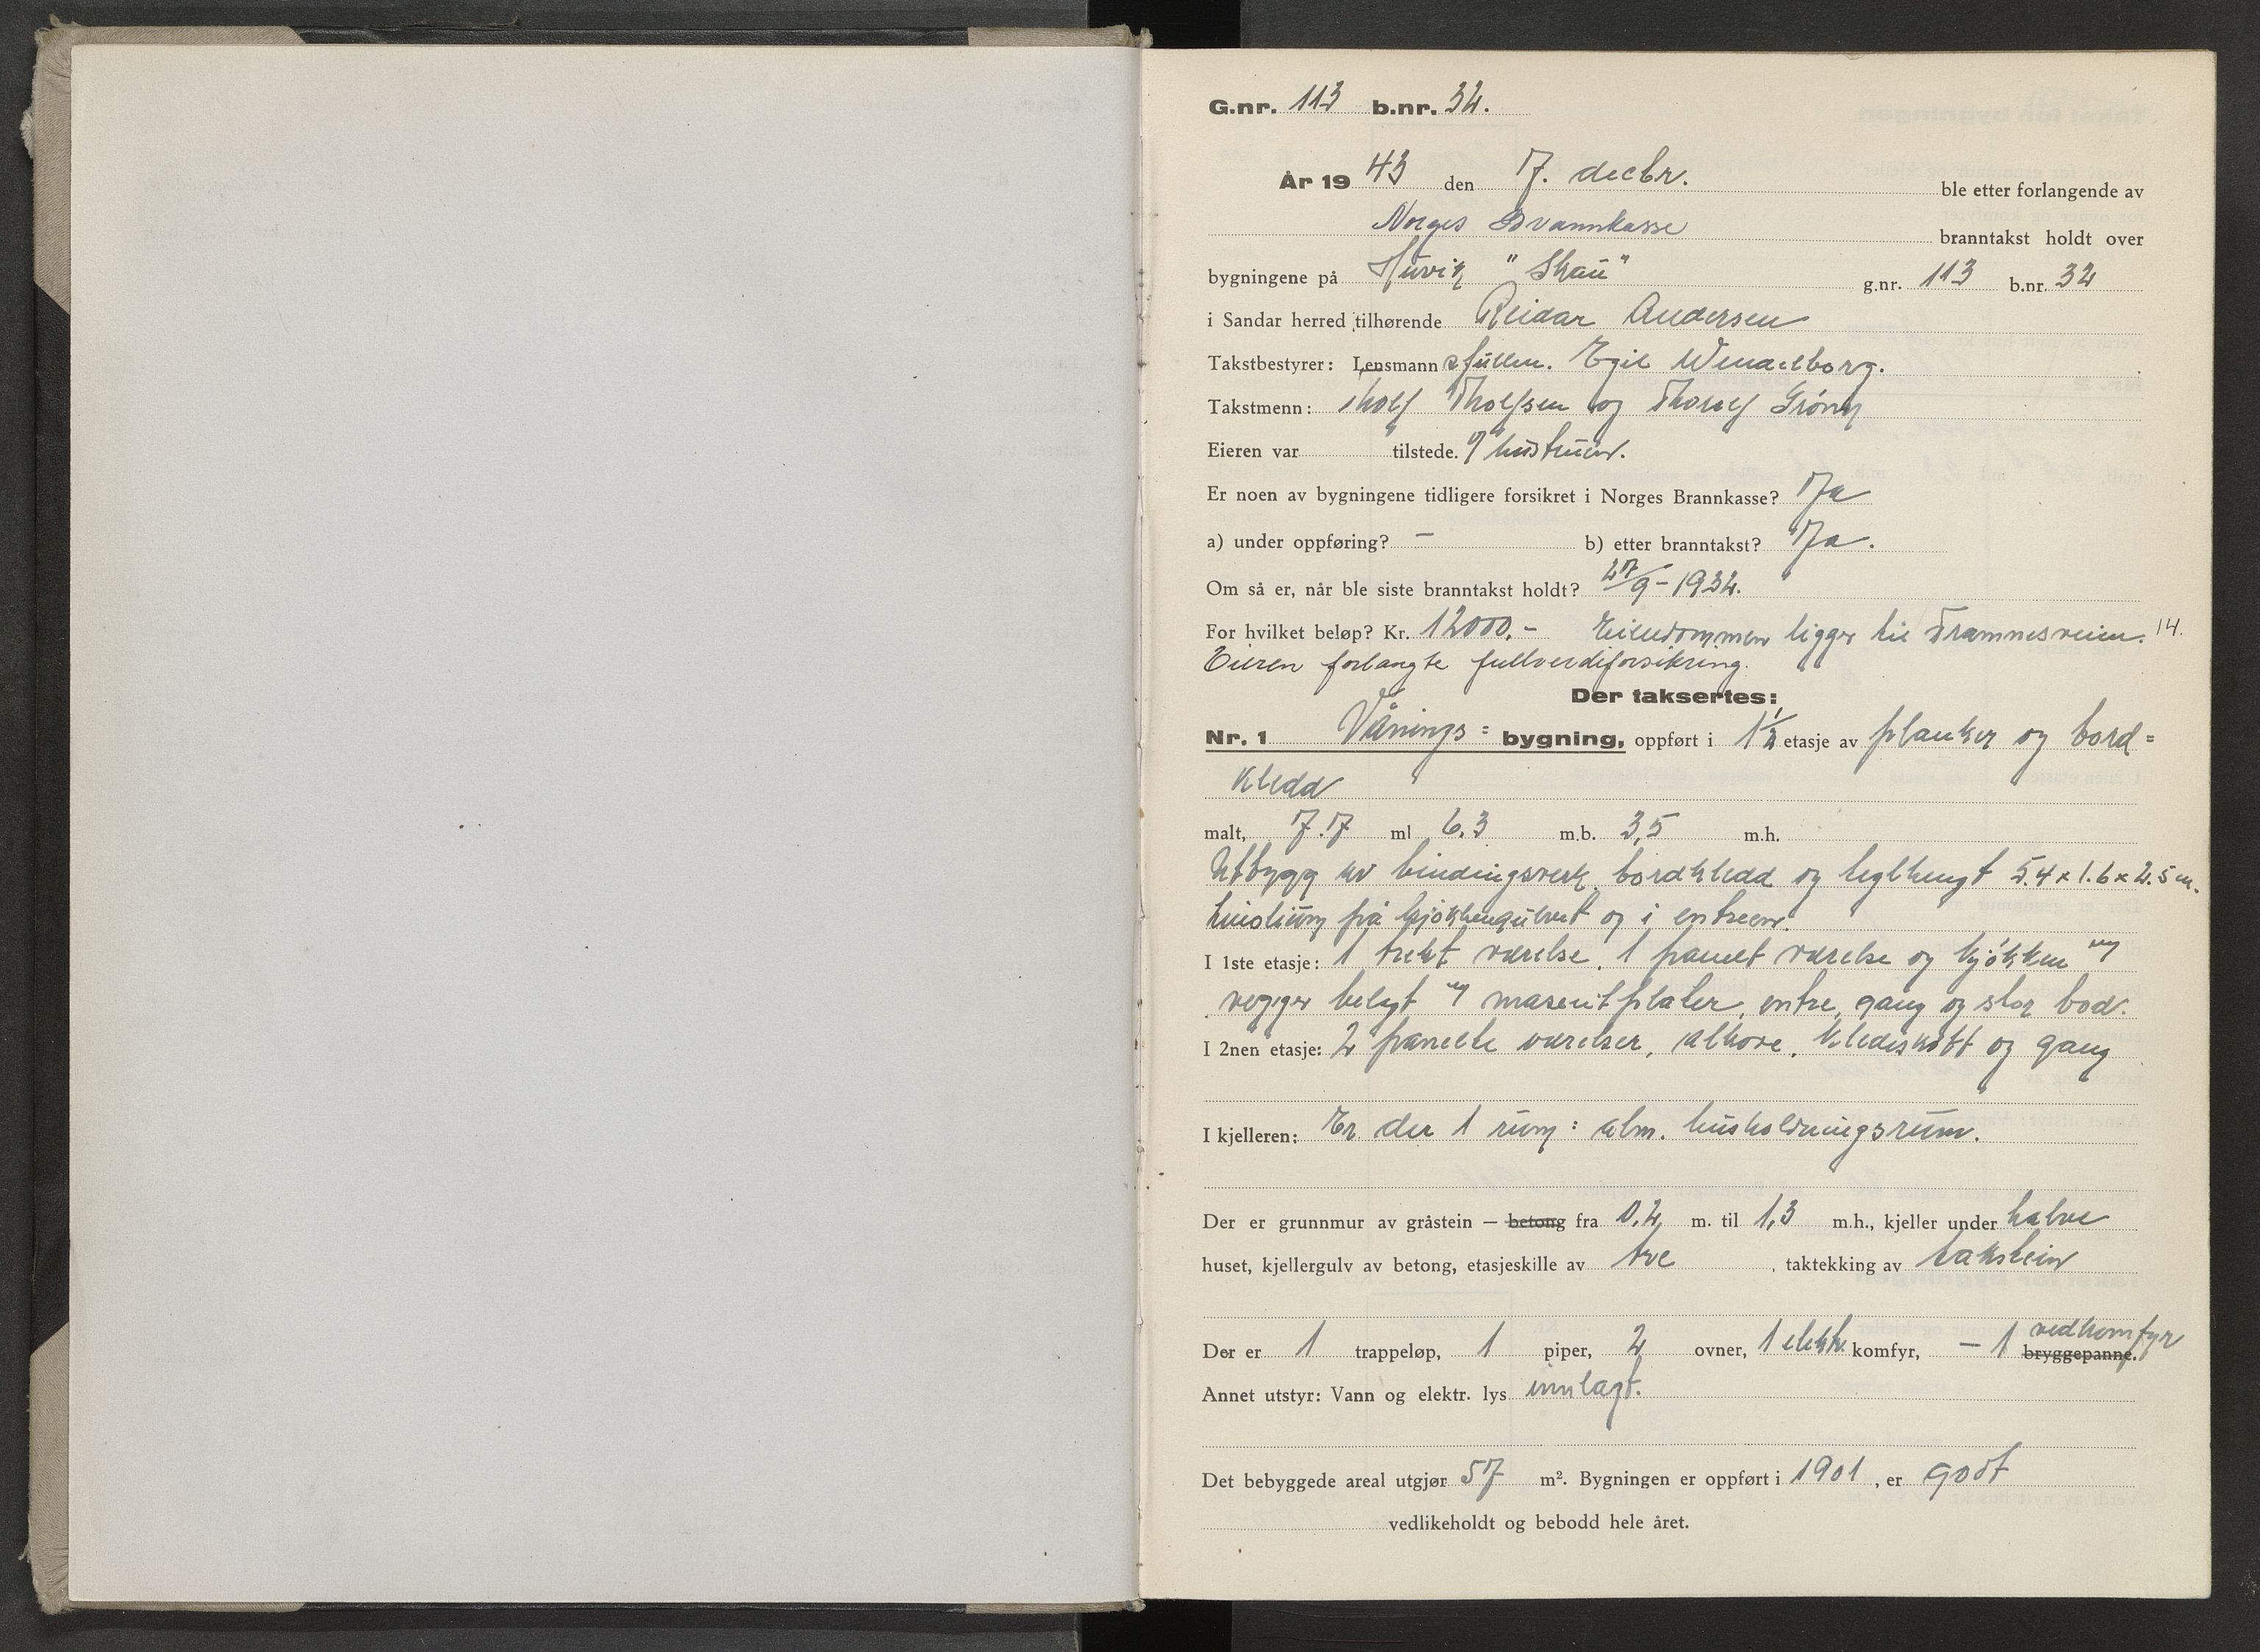 G.nr. 113 b.nr. 32.
År 1943 den 17. decbr. ble etter forlangende av
Norges Brannkasse branntakst holdt over
bygningene på Huvik "Skau" g.nr. 113 b.nr. 32
i Sandar herred tilhørende Reidar Andersen
Takstbestyrer: Lensmann sfullm. Egil Wendelborg.
Takstmenn: Tholf Tholfsen og Thorolf Grönn
Eieren var " tilstede. hustruen.
Er noen av bygningene tidligere forsikret i Norges Brannkasse? Ja
a) under oppføring? – b) etter branntakst? Ja.
Om så er, når ble siste branntakst holdt? 27/9-1932.
For hvilket beløp? Kr. 12000.- Eiendommen ligger til Framnesveien. 14.
Eieren forlangte fullverdiforsikring.
Der taksertes:
Nr. 1 Vånings= bygning, oppført i 1 1/2 etasje av planker og bord=
kledd
malt, 7.7 ml 6.3 m.b. 3,5 m.h.
Utbygg av bindingsverk, bordkledd og teglhengt 5.4 x 1.6 x 2.5 m.
linolium på kjökkengulvet og i entreen.
I 1ste etasje: 1 trekt værelse, 1 panelt værelse og kjökken m/
vegger belagt m/ masonitplater, entre, gang og stor bod.
I 2nen etasje: 2 panelte værelser, alkove, kledeskott og gang
I kjelleren: Er der 1 rum: alm. husholdningsrum.
Der er grunnmur av gråstein — betong fra 0.2 m. til 1,3 m.h., kjeller under halve
huset, kjellergulv av betong, etasjeskille av tre , taktekking av takstein
Der er 1 trappeløp, 1 piper, 2 ovner, 1 elektr. komfyr, – 1 bryggepanne. vedkomfyr
Annet utstyr: Vann og elektr. lys innlagt.
Det bebyggede areal utgjør 57 m². Bygningen er oppført i 1901 , er godt
vedlikeholdt og bebodd hele året.